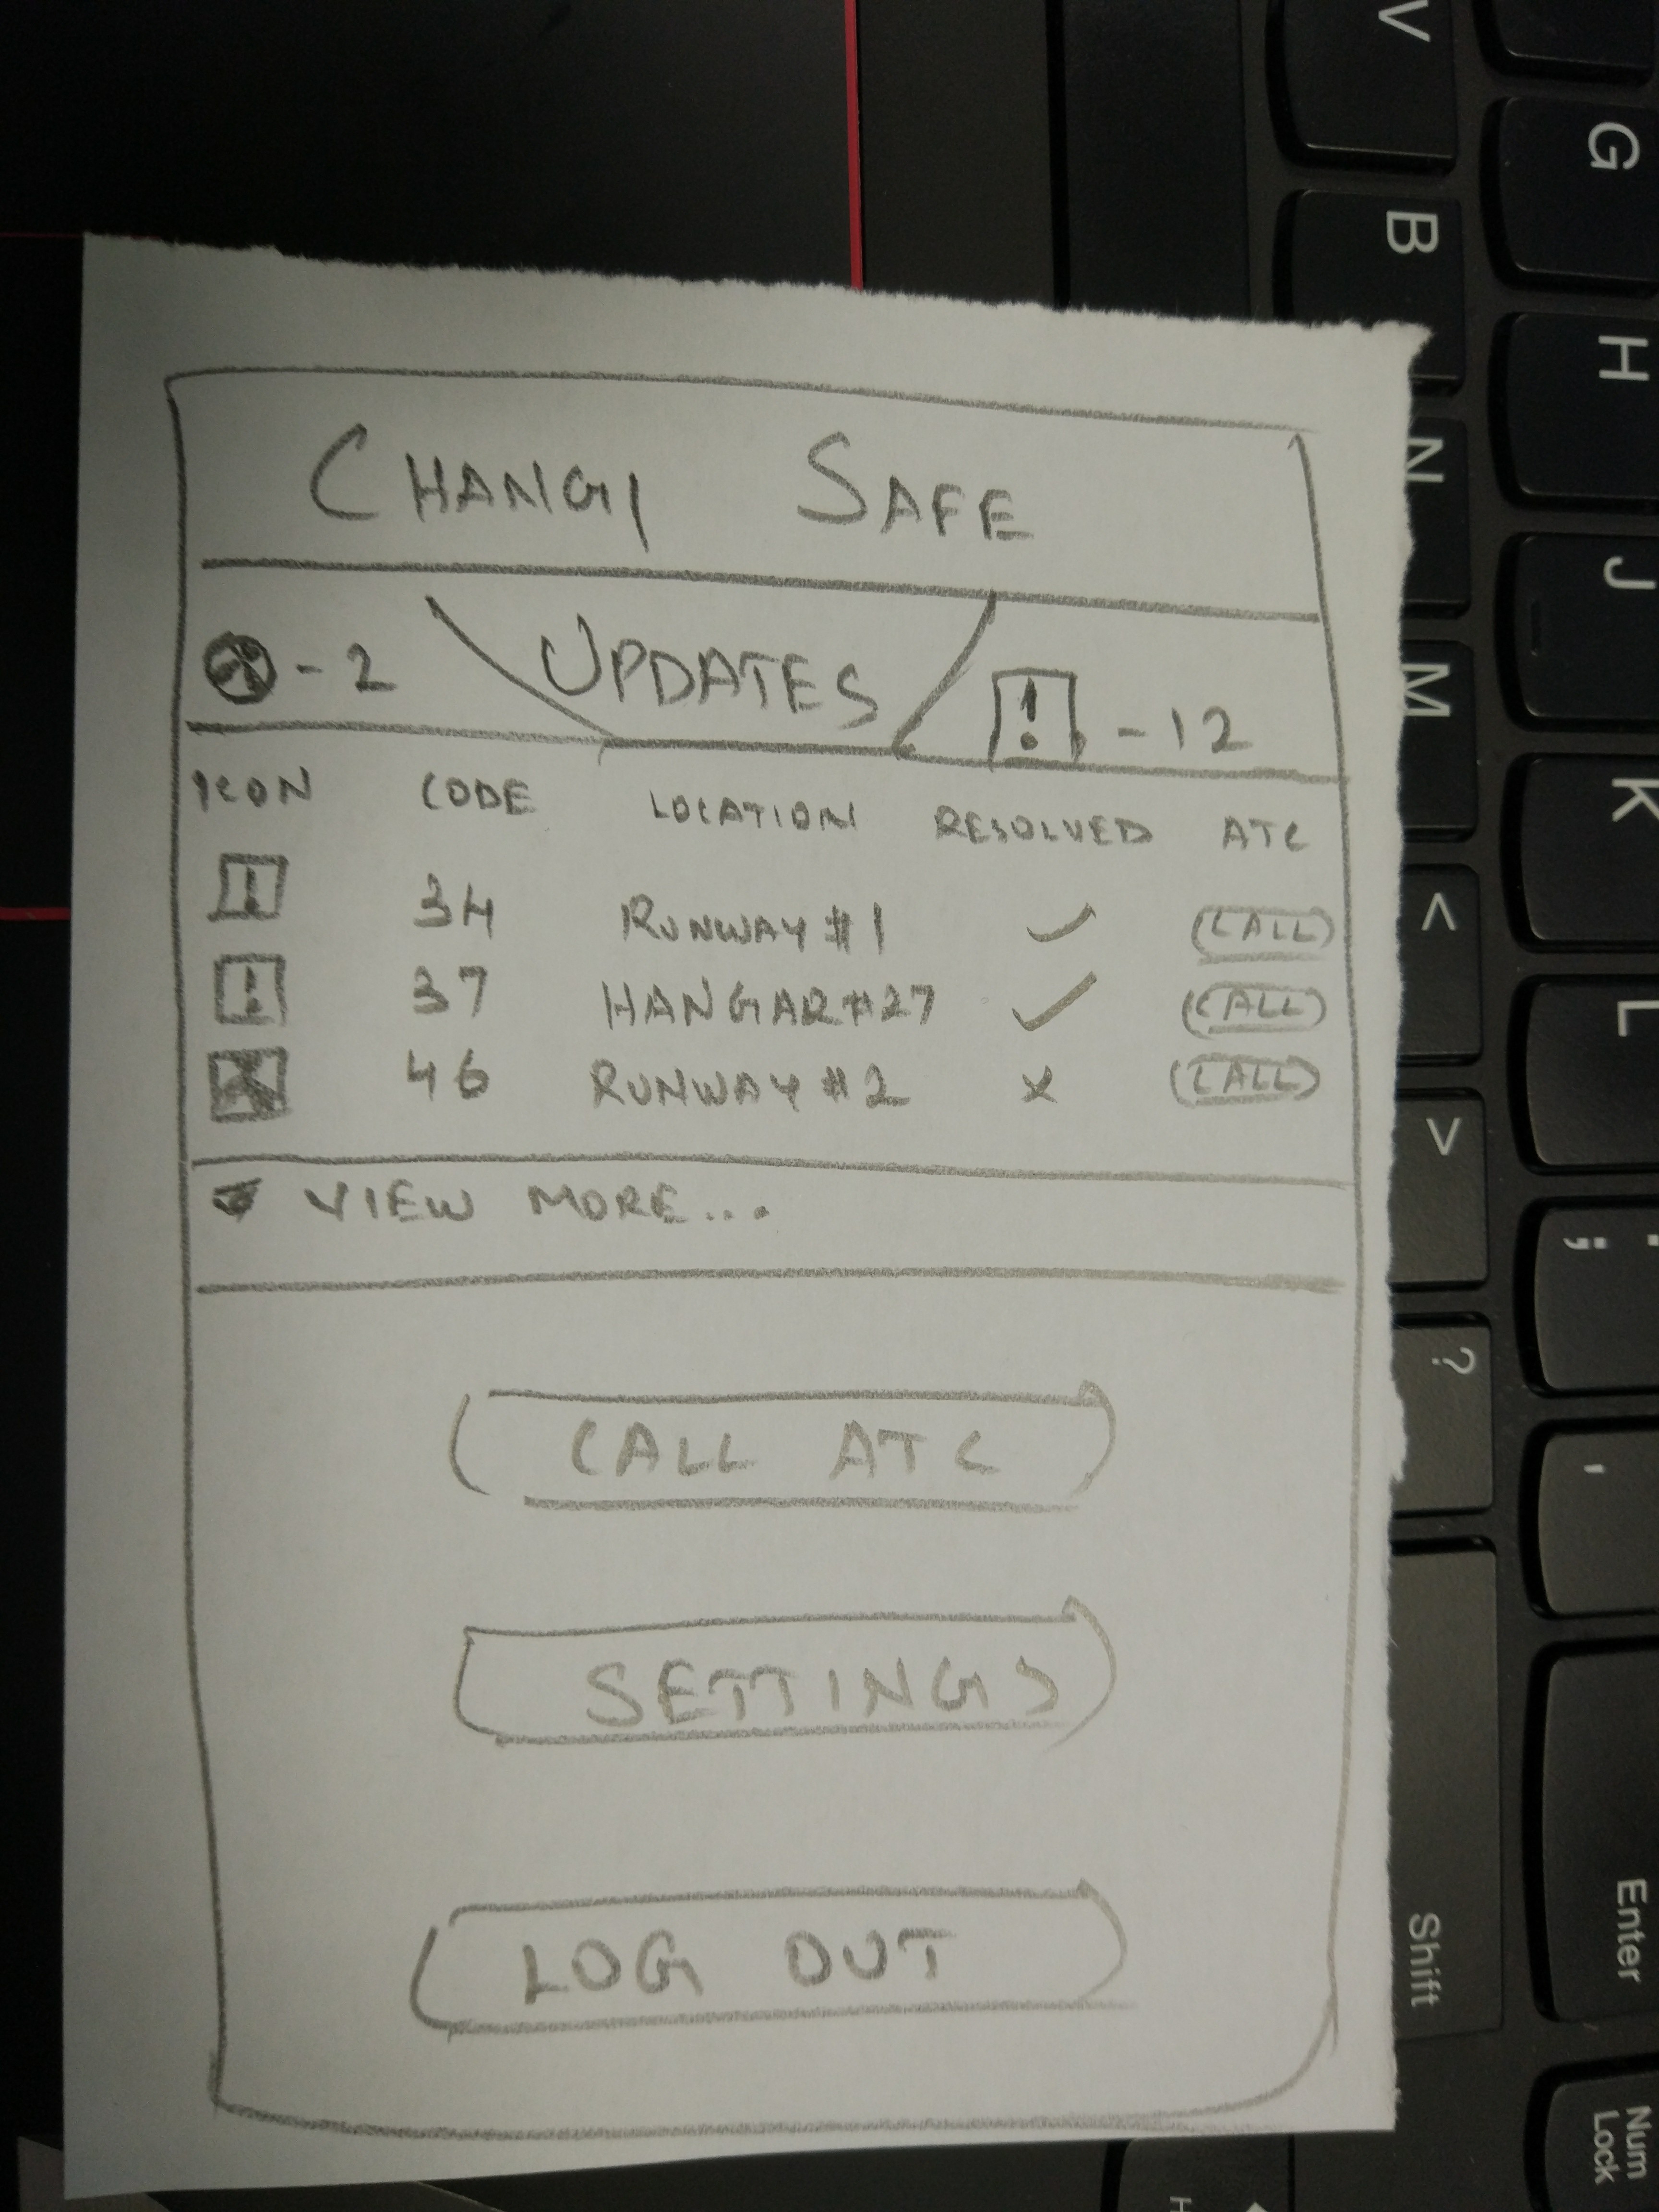 CHANGI SAFE
- 2 UPDATES ! - 12
ICON CODE LOCATION RESOLVED ATC
! 34 RUNWAY #1 ✓ CALL
! 37 HANGAR #27 ✓ CALL
X 46 RUNWAY #2 x CALL
VIEW MORE...
CALL ATC
SETTINGS
LOG OUT
V
G
B
H
N
J
M
K
<
L
>
;
?
'
Enter
Shift
Num
Lock